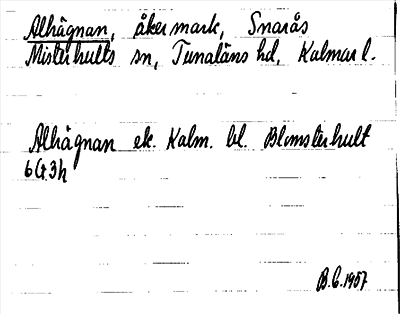 Alhägnan, åkermark, Snarås
Misterhults sn, Tunaläns hd, Kalmar l.
Alhägnan ek. Kalm. bl. Blomsterhult
6G3h
B.C. 1957